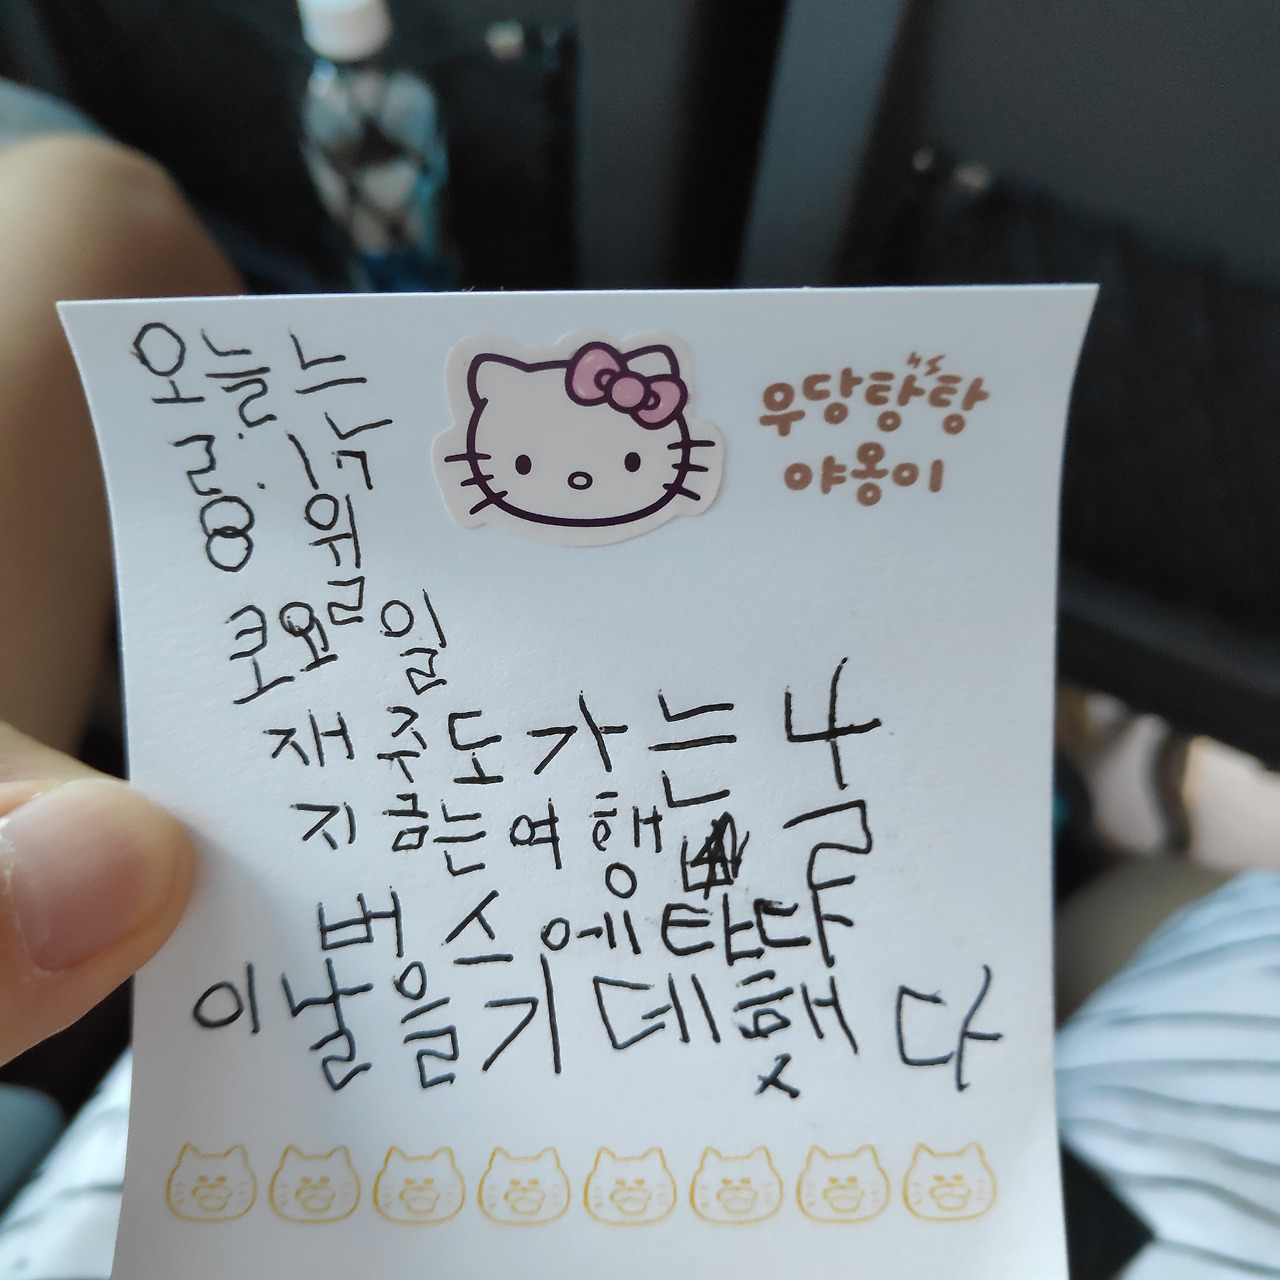 오늘는
우당탕탕
야옹이
8월
토요일
재주도가는 날
지금는여행
버스에탄다
이날을기데했다